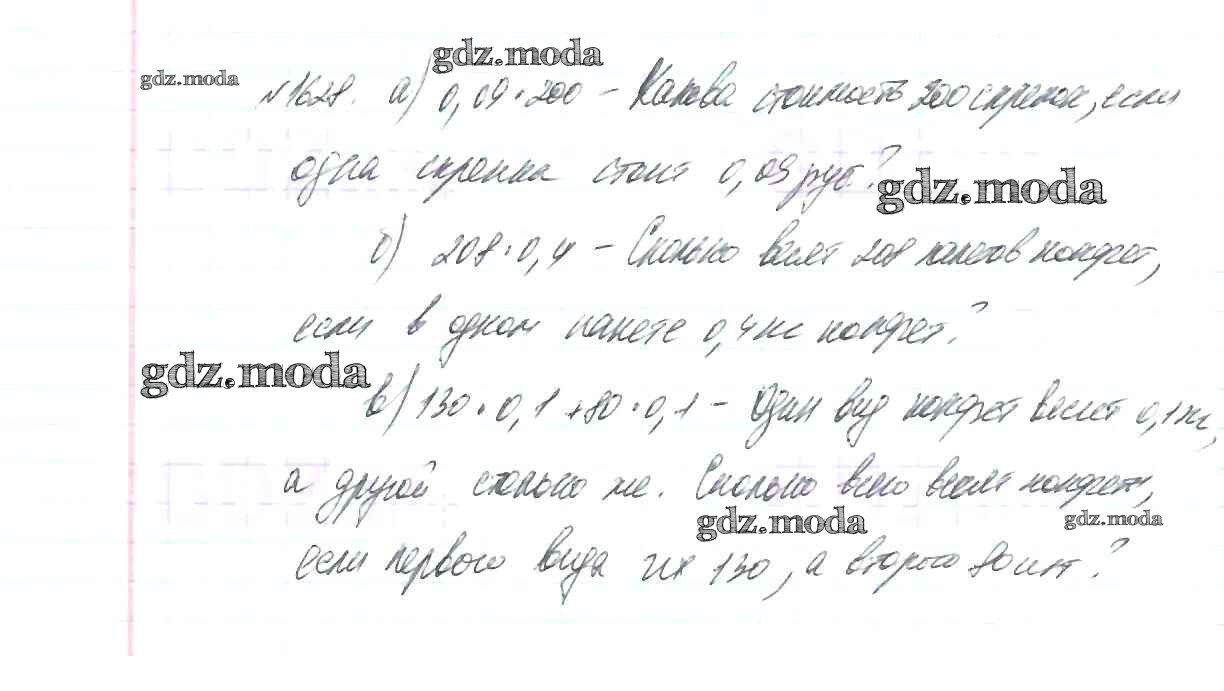 gdz.moda
gdz.moda
№1628. а) 0,09·200 – Какова стоимость 200 скрепок, если
одна скрепка стоит 0,09 руб.?
gdz.moda
б) 208·0,4 – Сколько весят 208 пакетов конфет,
если в одном пакете 0,4 кг конфет?
gdz.moda
в) 130·0,1+80·0,1 – Один вид конфет весит 0,1 кг,
а другой столько же. Сколько всего весят конфеты,
gdz.moda
gdz.moda
если первого вида их 130, а второго 80 шт?